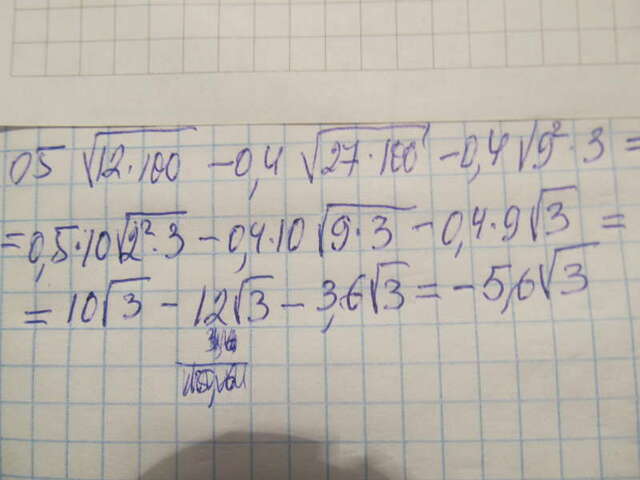 05 √12·100 - 0,4 √27·100 - 0,4 √9²·3 =
= 0,5·10√2²·3 - 0,4·10 √9·3 - 0,4·9√3 =
= 10√3 - 12√3 - 3,6√3 = -5,6√3